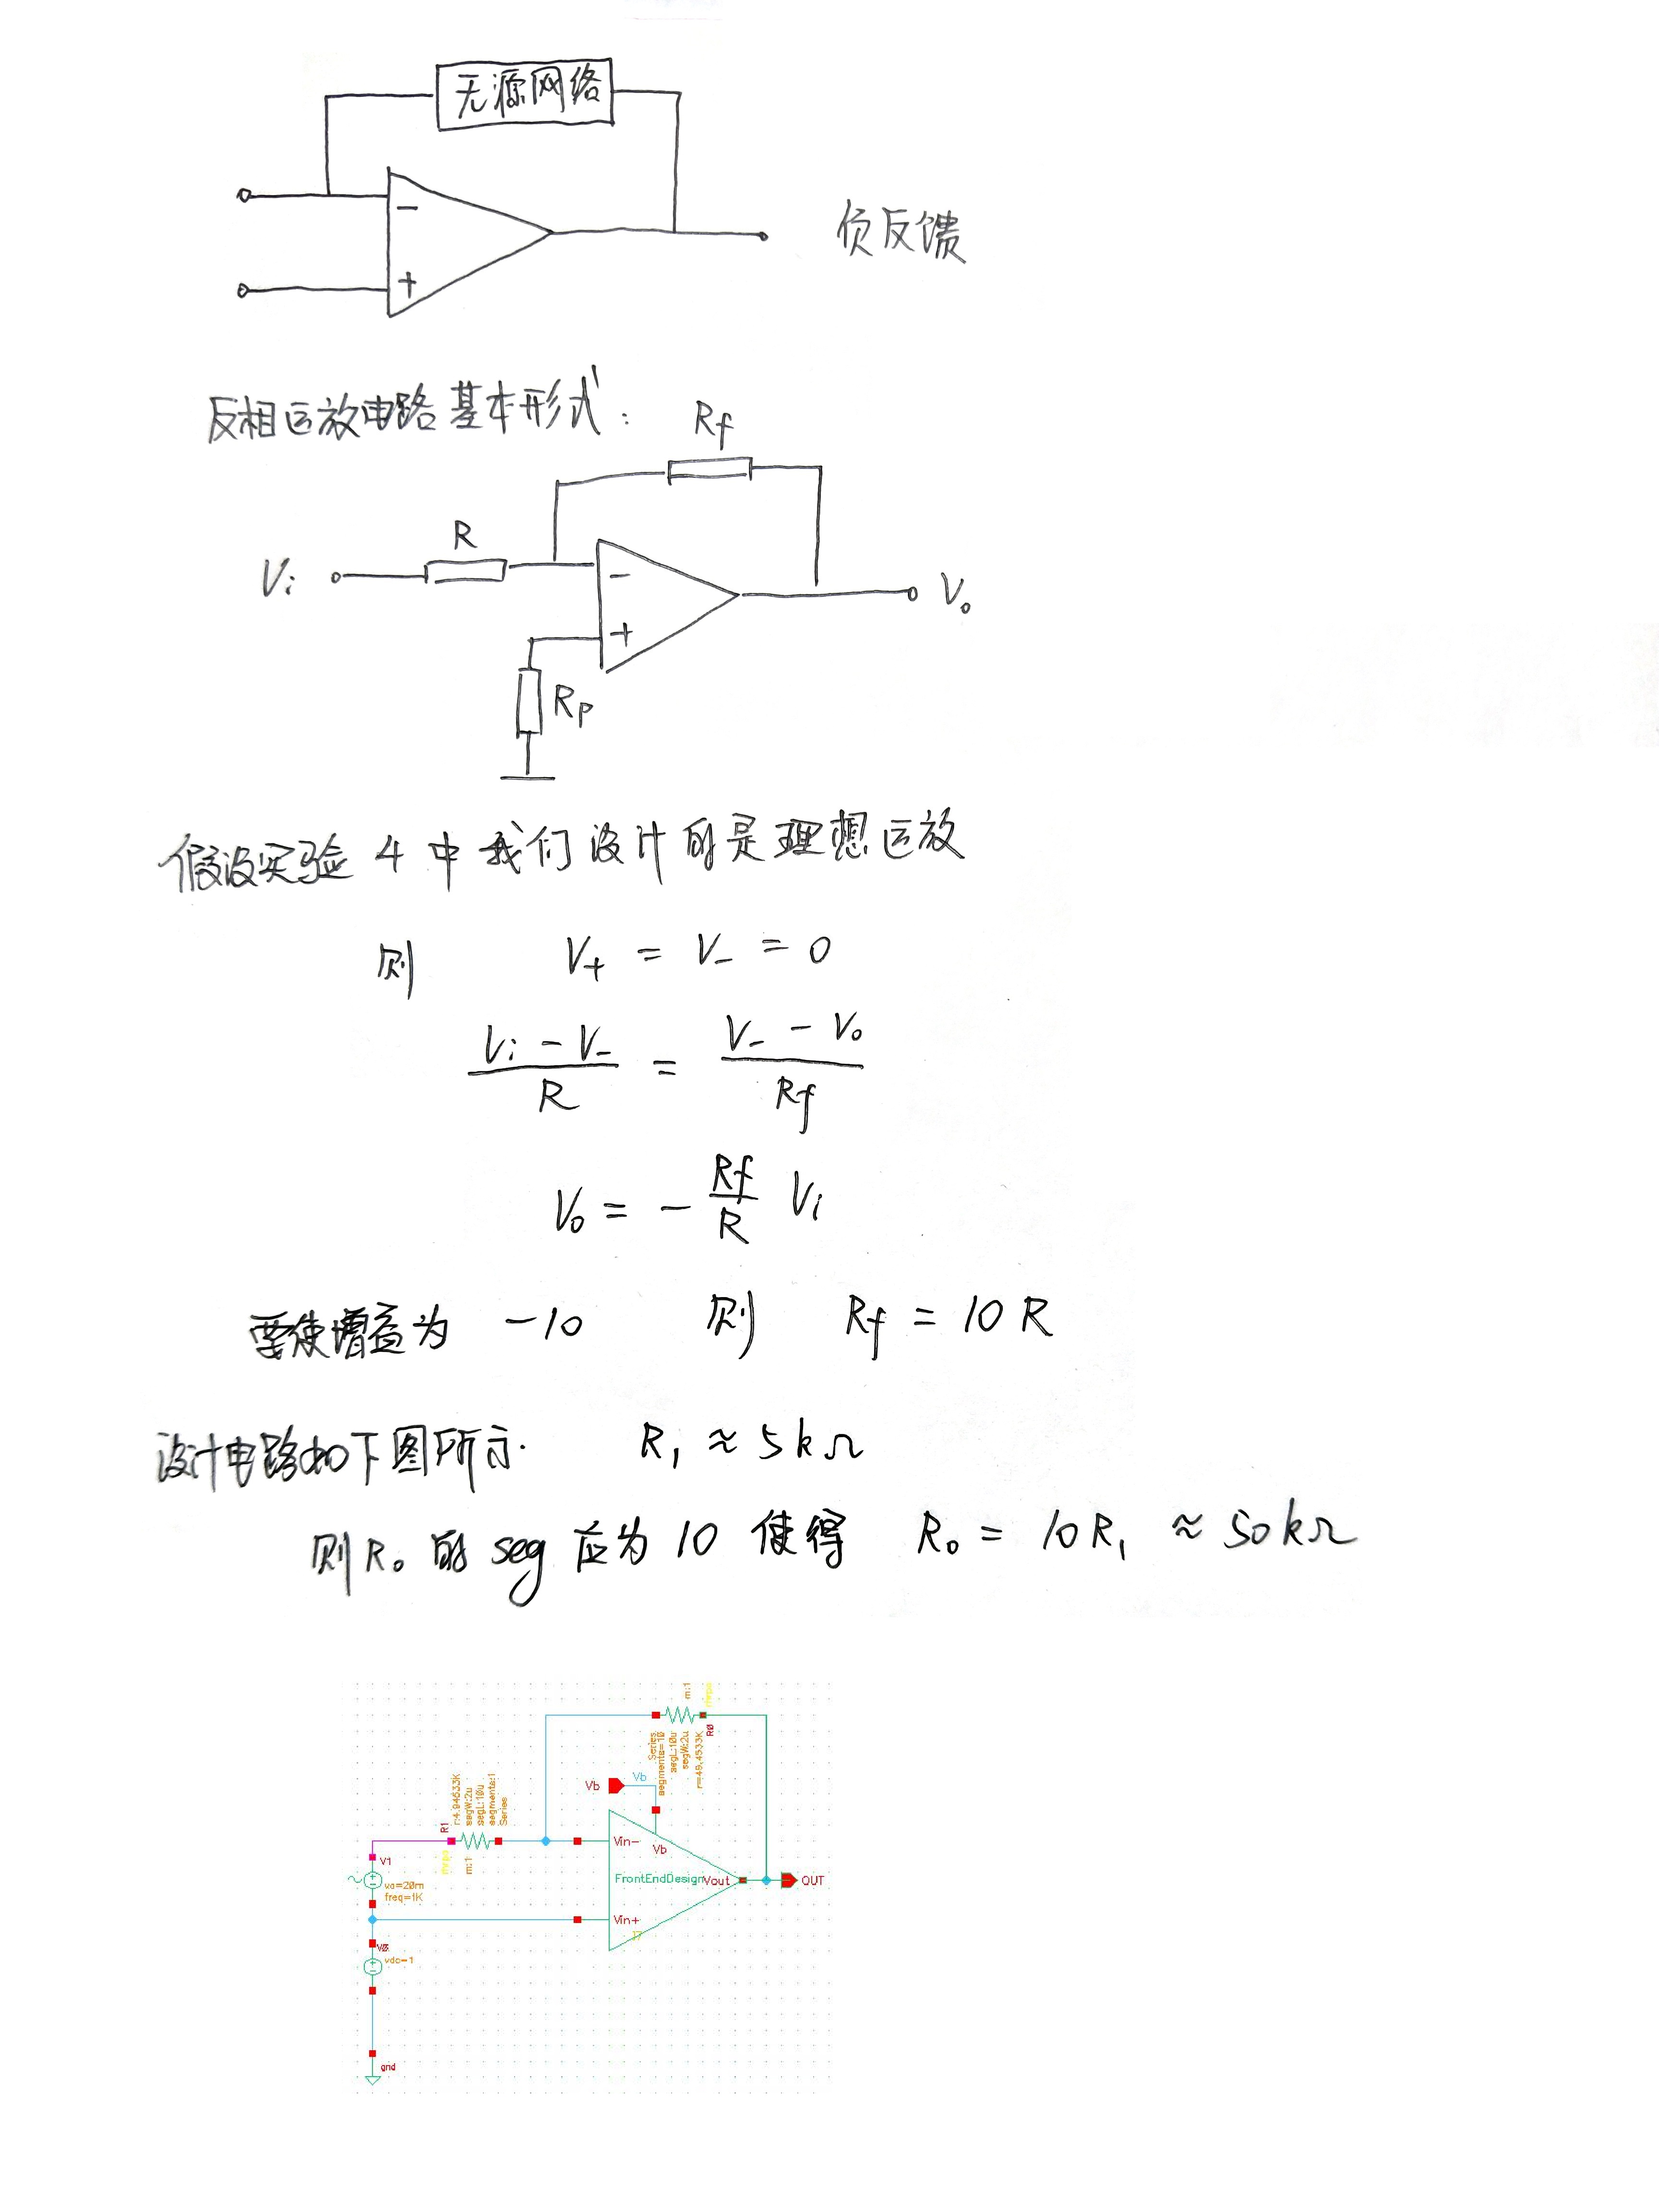 无源网络
-
+
负反馈
反相运放电路基本形式:
Rf
R
Vi
-
+
Vo
Rp
假设实验4中我们设计的是理想运放
则 V+ = V- = 0
(Vi - V-)/R = (V- - Vo)/Rf
Vo = - Rf/R Vi
要使增益为 -10 则 Rf = 10R
设计电路如下图所示. R1 ≈ 5kΩ
则R0的seg应为10使得 R0 = 10R1 ≈ 50kΩ
m:1
R0
Series
segments=10
segL:10u
segW:2u
r=49.4533K
Vb
Vb
R1
r:4.94533K
segW:2u
segL:10u
segments:1
Series
m:1
Vin-
Vb
FrontEndDesign
Vout
OUT
V1
va=20m
freq=1K
Vin+
I7
V0
vdc=1
gnd